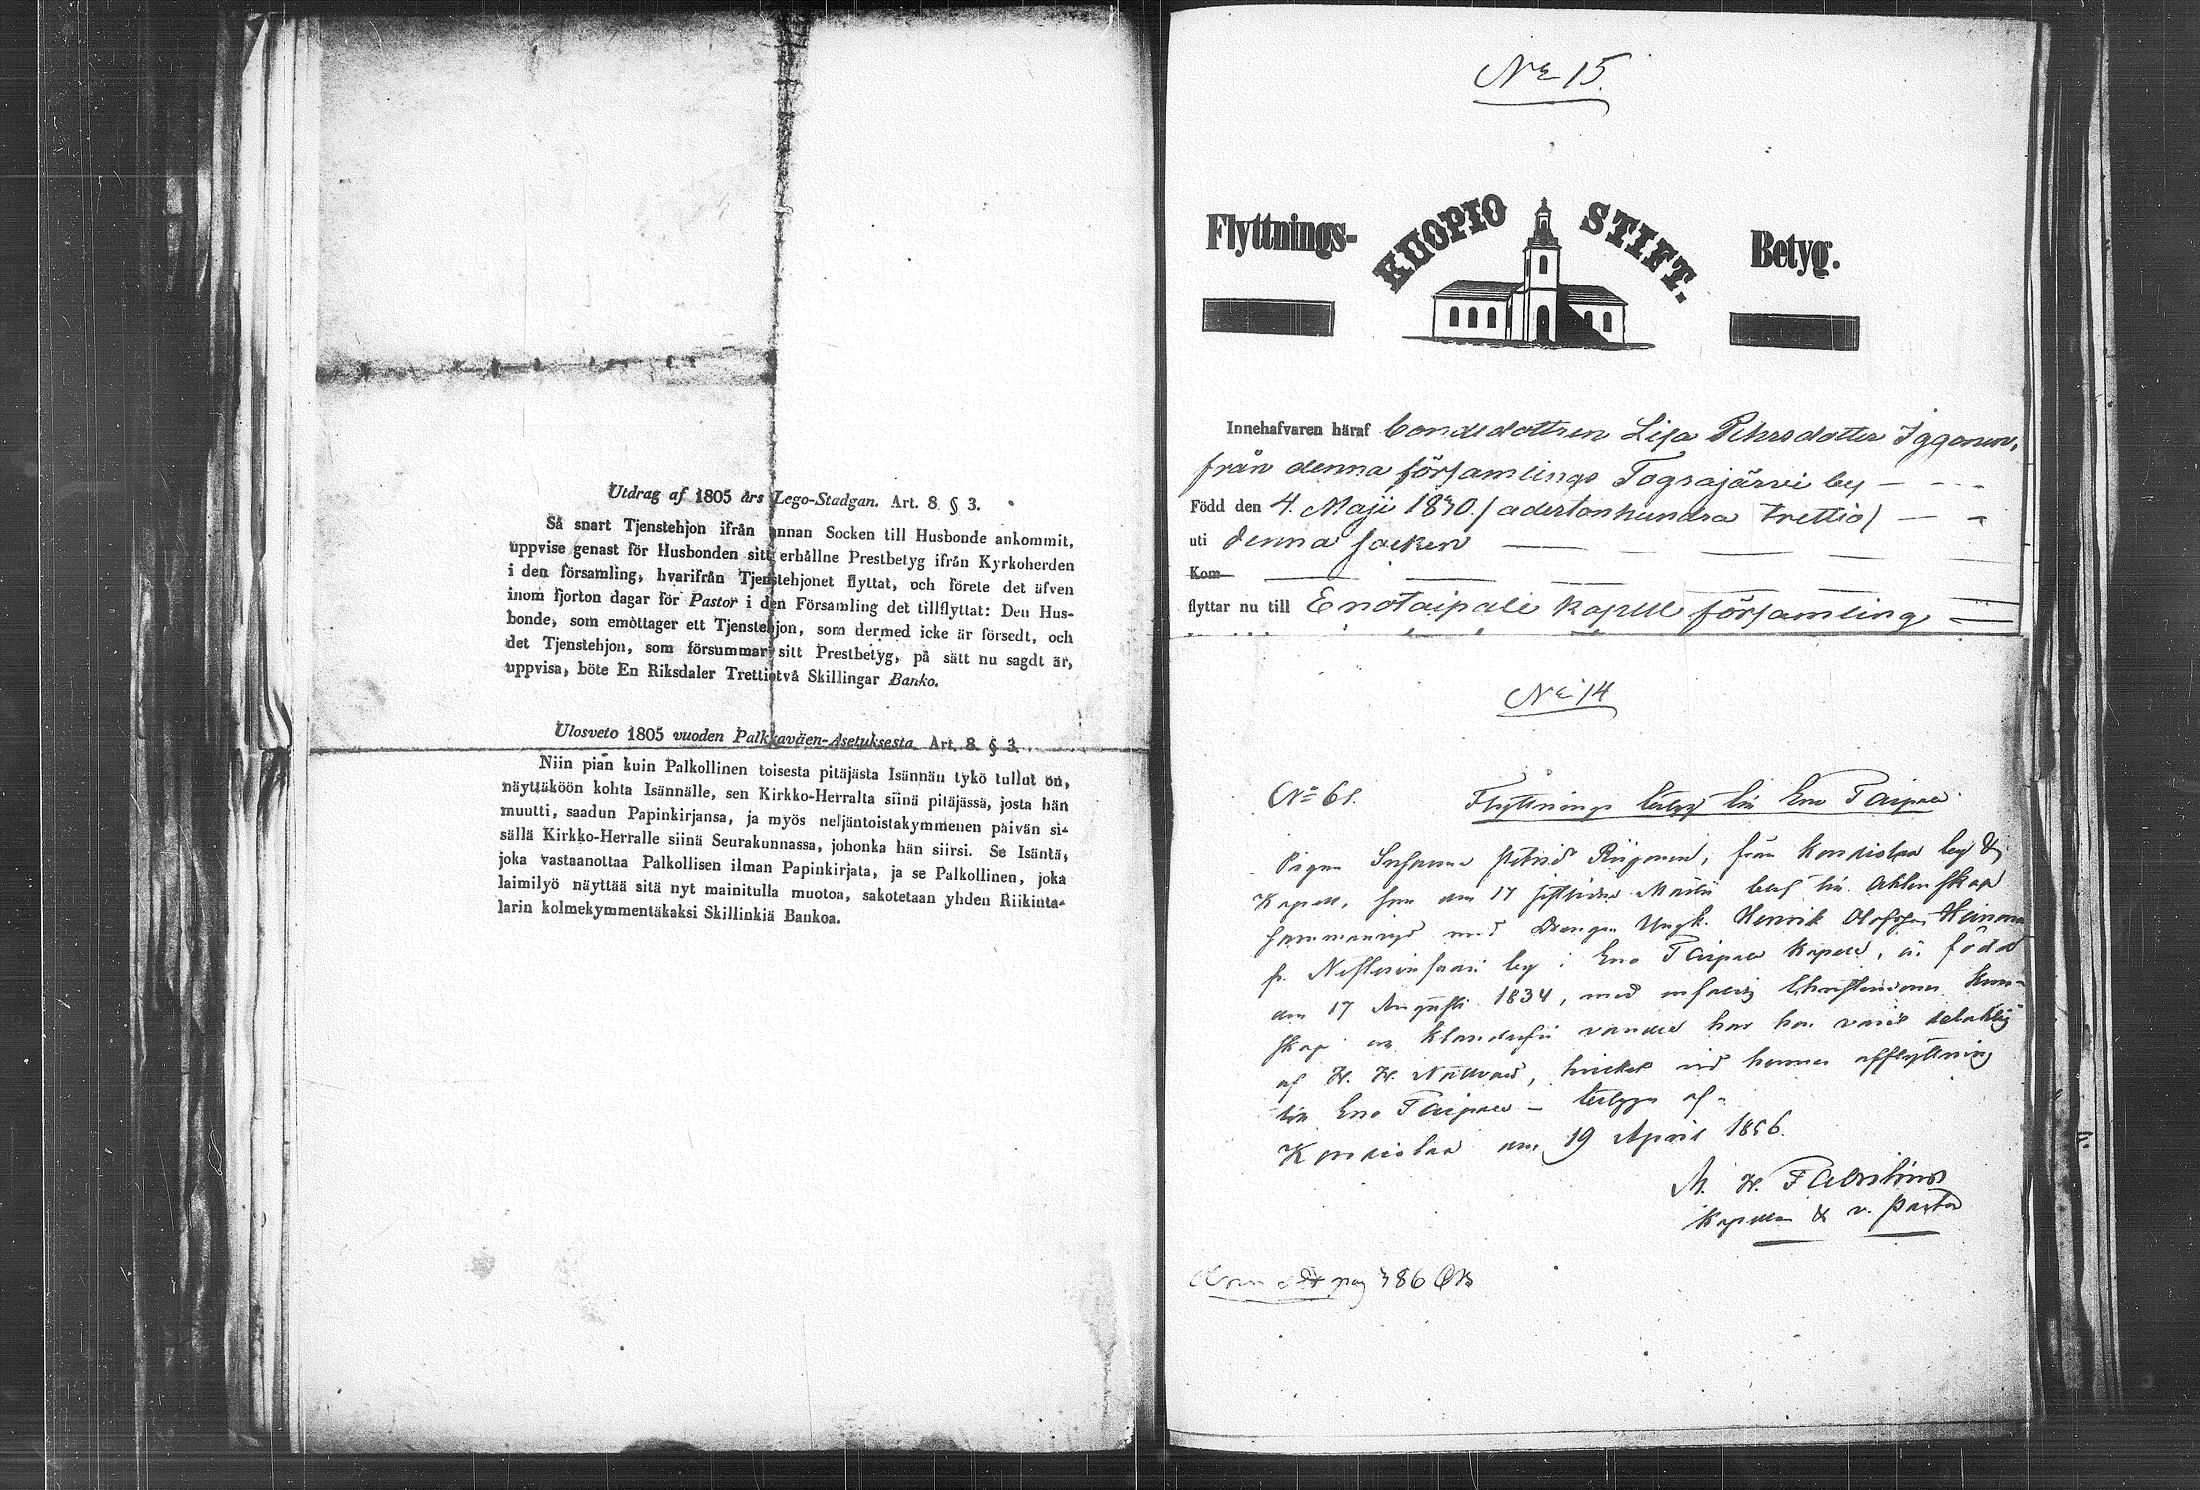 Utdrag af 1805 års Lego-Stadgan. Art. 8 § 3.
Så snart Tjenstehjon ifrån annan Socken till Husbonde ankommit,
uppvise genast för Husbonden sitt erhållne Prestbetyg ifrån Kyrkoherden
i den församling, hvarifrån Tjenstehjonet flyttat, och förete det äfven
inom fjorton dagar för Pastor i den Församling det tillflyttat: Den Hus-
bonde, som emottager ett Tjenstehjon, som dermed icke är försedt, och
det Tjenstehjon, som försummar sitt Prestbetyg, på sätt nu sagdt är,
uppvisa, böte En Riksdaler Trettiotvå Skillingar Banko.
Ulosveto 1805 vuoden Palkkaväen-Asetuksesta. Art. 8. § 3.
Niin pian kuin Palkollinen toisesta pitäjästä Isännän tykö tullut on,
näyttäköön kohta Isännälle, sen Kirkko-Herralta siinä pitäjässä, josta hän
muutti, saadun Papinkirjansa, ja myös neljäntoistakymmenen päivän si-
sällä Kirkko-Herralle siinä Seurakunnassa, johonka hän siirsi. Se Isäntä,
joka vastaanottaa Palkollisen ilman Papinkirjata, ja se Palkollinen, joka
laimilyö näyttää sitä nyt mainitulla muotoa, sakotetaan yhden Riikinta-
larin kolmekymmentäkaksi Skillinkiä Bankoa.
No 15.
Flyttnings- KUOPIO STIFT. Betyg.
Innehafvaren häraf bondedottren Lisa Pehrsdotter
från denna församlings by
Född den 4. Maji 1830. (adertonhundra trettio)
uti denna socken
Kom
flyttar nu till Enotaipale kapell församling
No 14
No 61.
Flyttnings betyg till Eno Taipale
Pigan Susanna Riiponen, från Kondiolax by &
Kapell, som den 17 Martii till Äktenskap
med Drengen Ungk. Henrik Olofsson
fr. by i Eno Taipale Kapell, är född
den 17 Augusti 1834, med Christendoms kun-
skap och vandel har hon varit delaktig
af H. H. Nattvard, hvilket vid hennes afflyttning
till Eno Taipale betygas af
Kondiolax den 19 April 1856.
M. H.
Kapellan & v. Pastor
pag 386